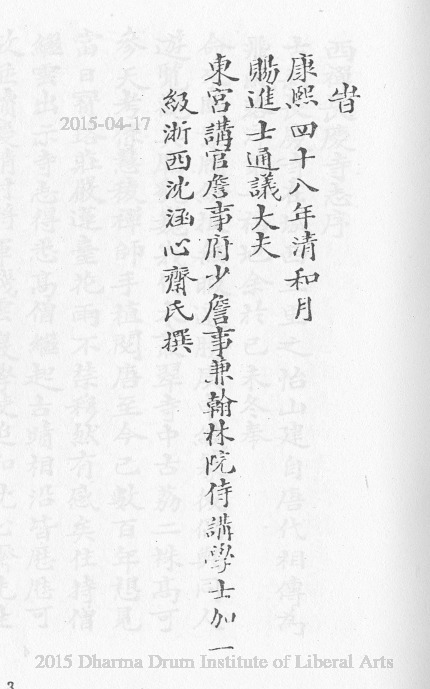 旹
康熙四十八年清和月
賜進士通議大夫
東宮講官詹事府少詹事兼翰林院侍講學士加一
級浙西沈涵心齋氏撰
2015-04-17
2015 Dharma Drum Institute of Liberal Arts
3